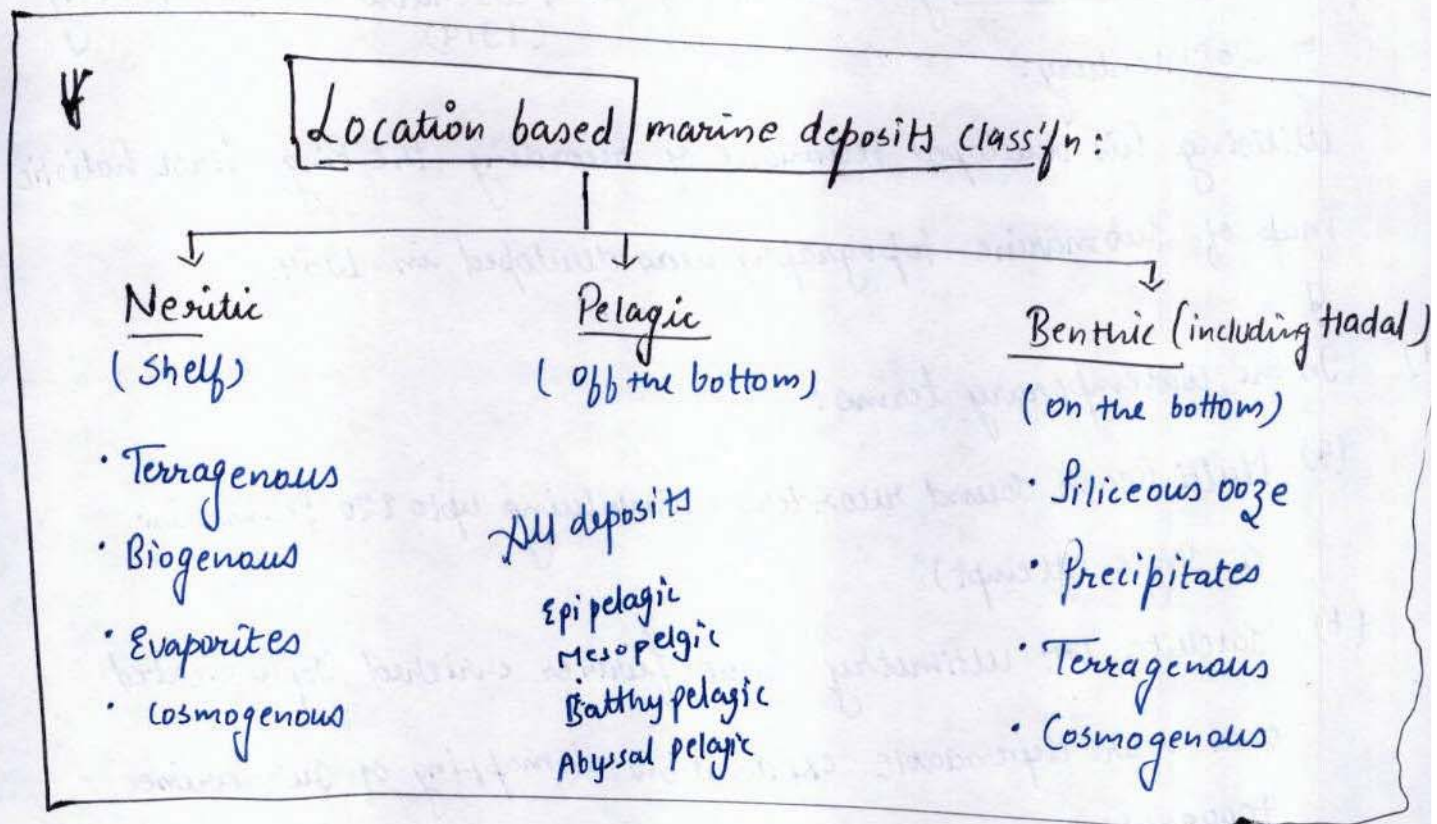 Location based marine deposits classifn:
Neritic
(Shelf)
• Terragenous
• Biogenous
• Evaporites
• Cosmogenous
Pelagic
(Off the bottom)
All deposits
Epipelagic
Mesopelgic
Batthypelagic
Abyssal pelagic
Benthic (including Hadal)
(on the bottom)
• Siliceous ooze
• Precipitates
• Terragenous
• Cosmogenous